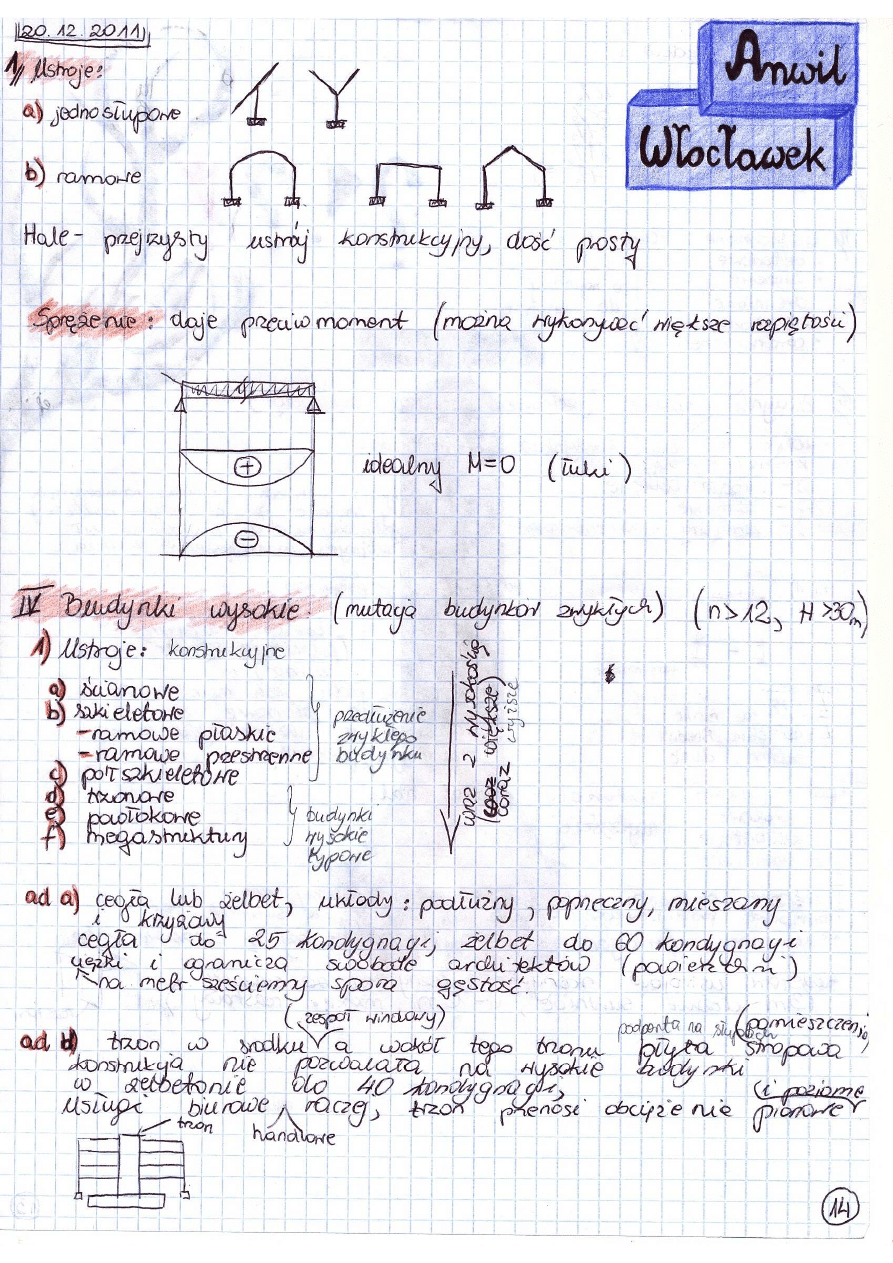 20.12.2011
Anwil
Włocławek
1) Ustroje:
a) jednosłupowe
b) ramowe
Hale - przejrzysty ustrój konstrukcyjny, dość prosty
Sprężenie: daje przeciwmoment (można wykonywać większe rozpiętości)
+
idealny M=0 (łuki)
-
IV Budynki wysokie (mutacja budynków zwykłych) (n>12, H>30m)
1) Ustroje: konstrukcyjne
a) ścianowe
b) szkieletowe
- ramowe płaskie
- ramowe przestrzenne
c) półszkieletowe
d) trzonowe
e) powłokowe
f) megastruktury
przedłużenie
zwykłego
budynku
budynki
wysokie
typowe
wraz z wysokością
(coraz większe)
coraz wyższe
ad a) cegła lub żelbet, układy: podłużny, poprzeczny, mieszany
i krzyżowy
cegła do 25 kondygnacji, żelbet do 60 kondygnacji
ciężki i ogranicza swobodę architektów (powierzchni)
na metr sześcienny spora gęstość.
(zespół windowy)
podparta na słupach (pomieszczenia)
ad d) trzon w środku a wokół tego trzonu płyta stropowa
konstrukcja nie pozwalała na wysokie budynki
w żelbetonie do 40 kondygnacji,
(i poziome
Usługi biurowe, raczej, trzon przenosi obciążenie pionowe
handlowe
trzon
14